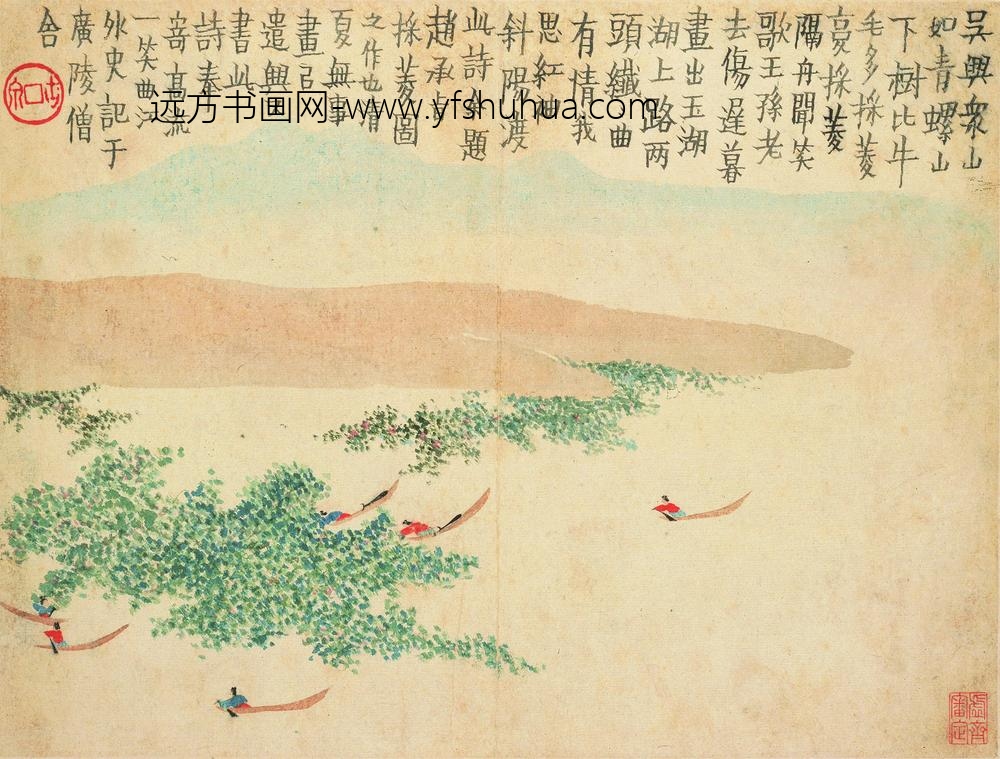 吳興衆山
如青螺山
下樹比牛
毛多採菱
採菱
隔舟聞笑
歌王孫老
去傷遲暮
畫出玉湖
湖上路两
頭纖曲
有情我
思紅
斜陽渡
此詩余題
趙承
採菱圖
之作也清
夏無事
畫㠯
遣興
書此
詩奉
寄高流
一笑曲江
外史記于
廣陵僧
舍
远方书画网 www.yfshuhua.com
虛齋
審定